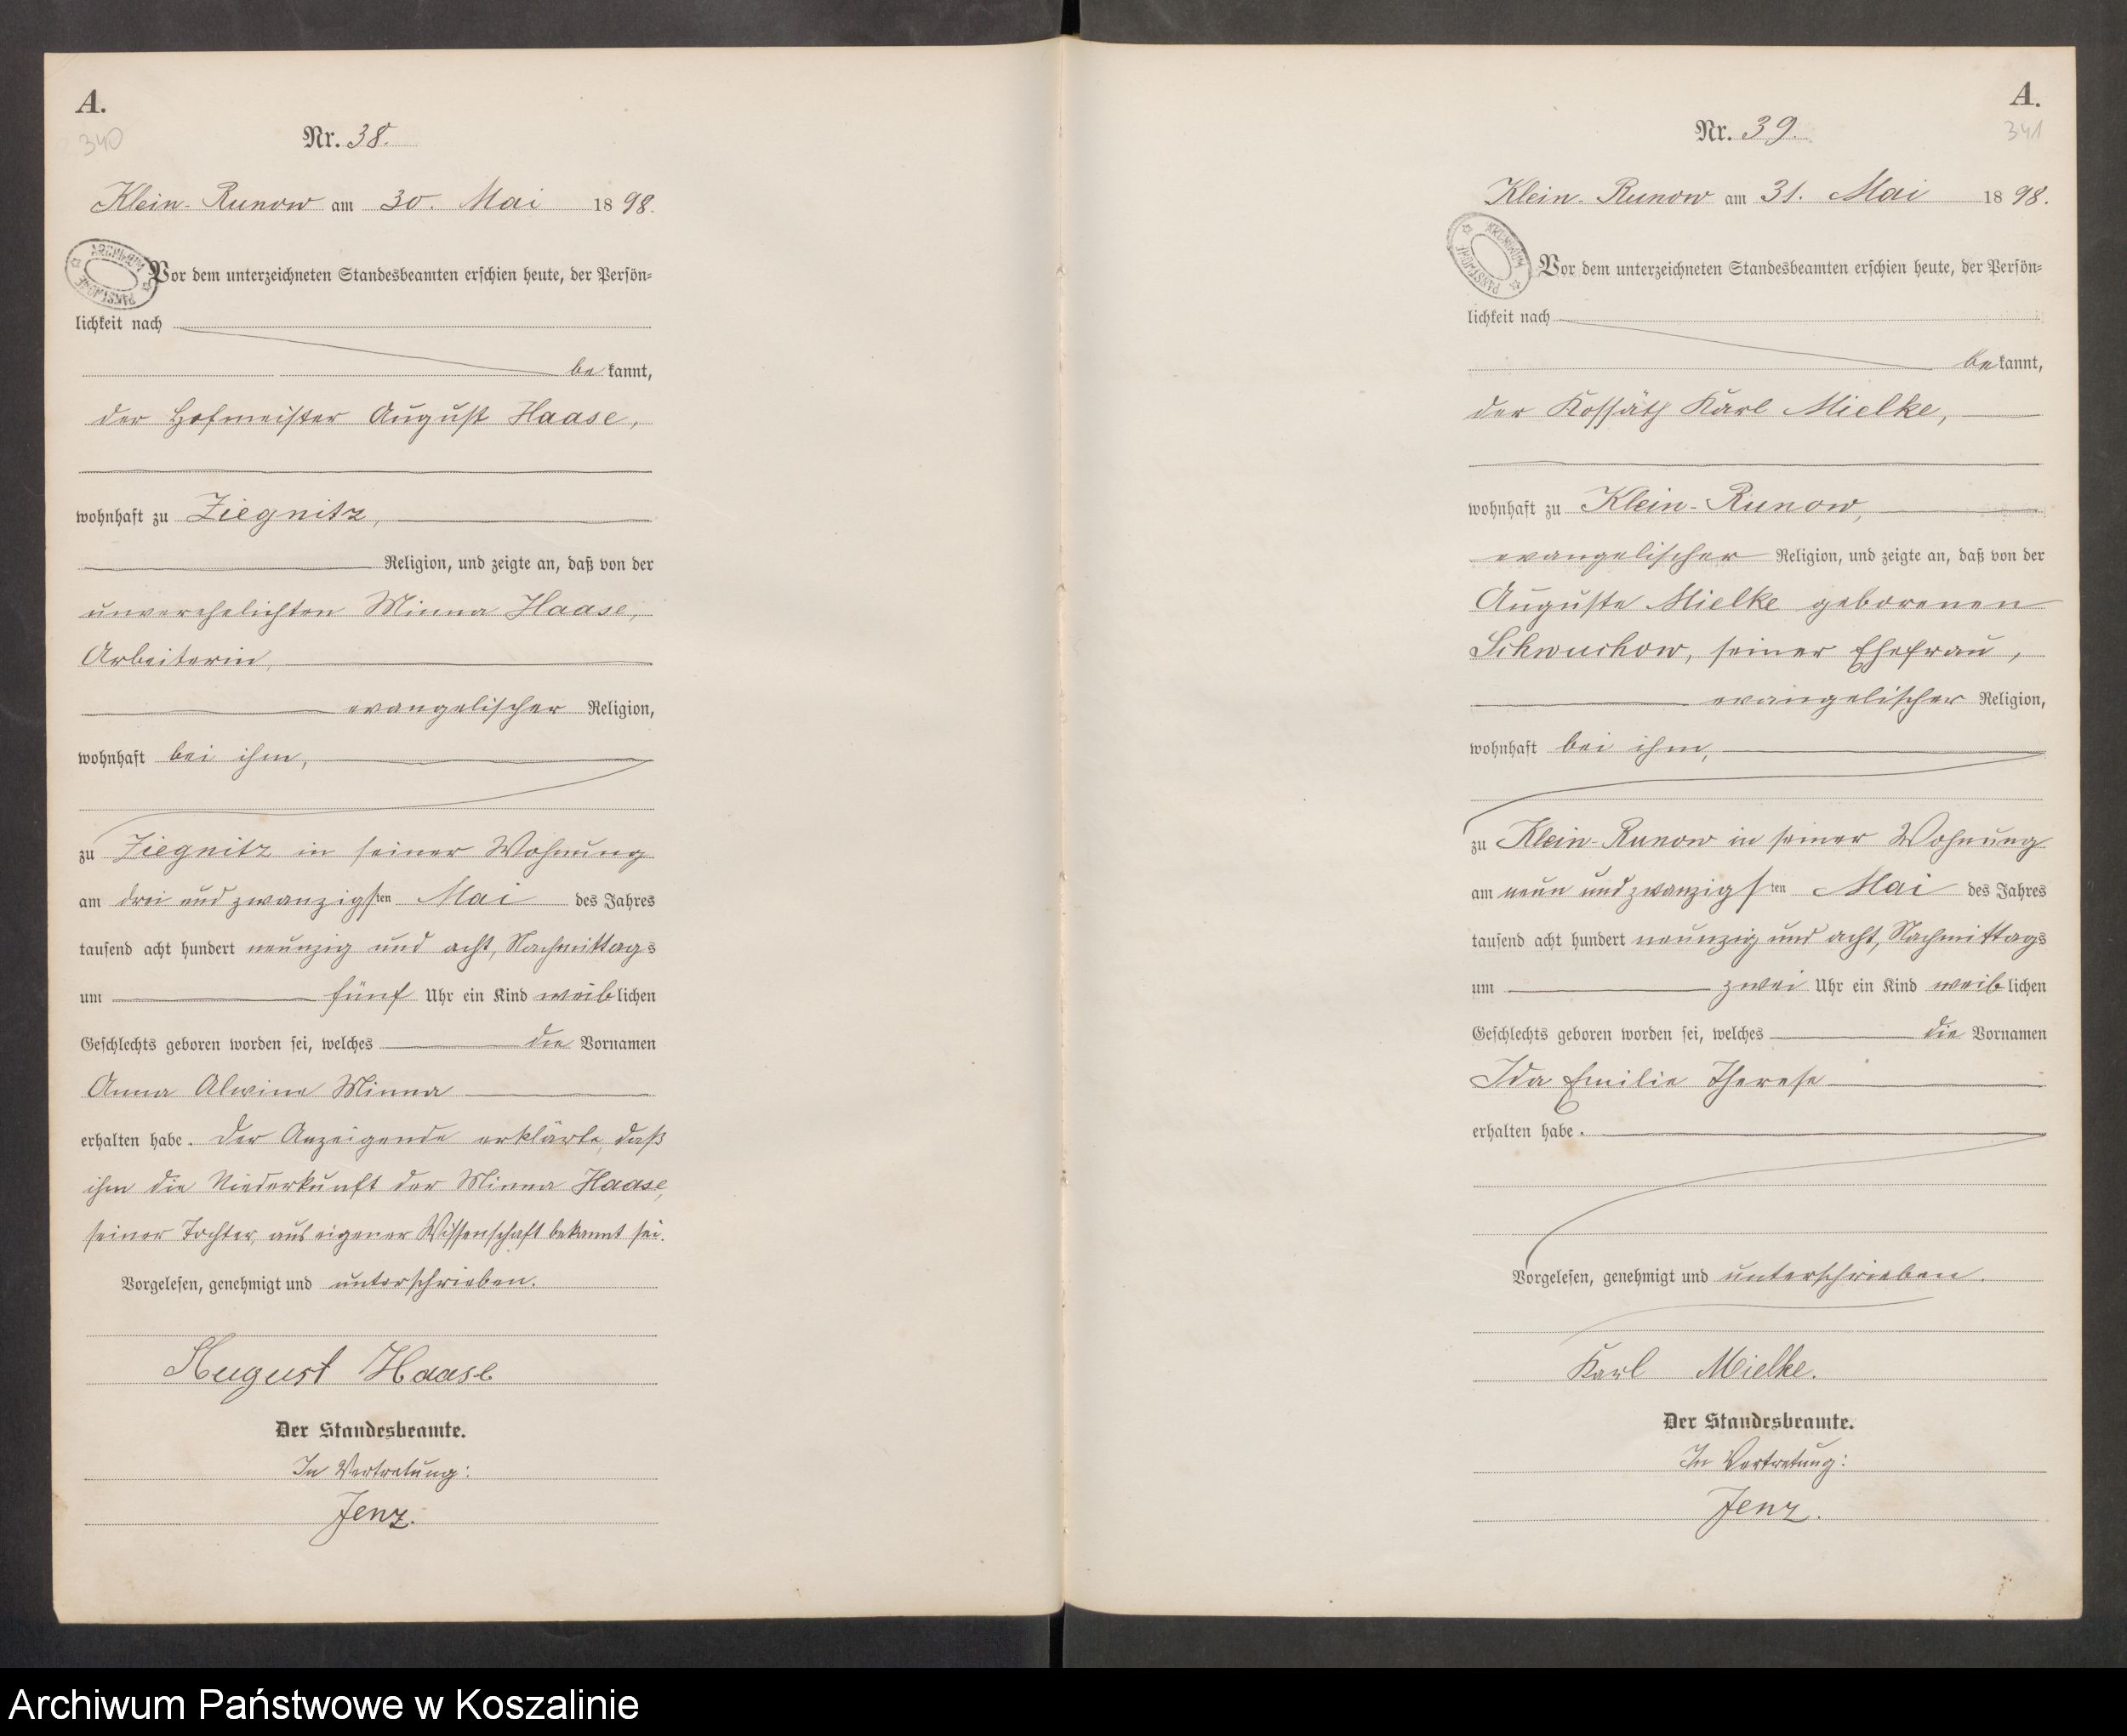 A.
340
Nr. 38.
Klein-Runow am 30. Mai 1898.
ARCHIWUM PAŃSTWOWE
Vor dem unterzeichneten Standesbeamten erschien heute, der Persön=
lichkeit nach
bekannt,
der Hofmeister August Haase,
wohnhaft zu Ziegnitz,
Religion, und zeigte an, daß von der
unverehelichten Minna Haase,
Arbeiterin,
evangelischer Religion,
wohnhaft bei ihm,
zu Ziegnitz in seiner Wohnung
am drei und zwanzigsten Mai des Jahres
tausend acht hundert neunzig und acht, Nachmittags
um fünf Uhr ein Kind weiblichen
Geschlechts geboren worden sei, welches die Vornamen
Anna Alwine Minna
erhalten habe. Der Anzeigende erklärte, daß
ihm die Niederkunft der Minna Haase,
seiner Tochter, aus eigener Wissenschaft bekannt sei.
Vorgelesen, genehmigt und unterschrieben.
August Haase
Der Standesbeamte.
In Vertretung:
Jenz.
A.
341
Nr. 39.
Klein-Runow am 31. Mai 1898.
ARCHIWUM PAŃSTWOWE
Vor dem unterzeichneten Standesbeamten erschien heute, der Persön=
lichkeit nach
bekannt,
der Kossäth Karl Mielke,
wohnhaft zu Klein-Runow,
evangelischer Religion, und zeigte an, daß von der
Auguste Mielke geborenen
Schwuchow, seiner Ehefrau,
evangelischer Religion,
wohnhaft bei ihm,
zu Klein-Runow in seiner Wohnung
am neun und zwanzigsten Mai des Jahres
tausend acht hundert neunzig und acht, Nachmittags
um zwei Uhr ein Kind weiblichen
Geschlechts geboren worden sei, welches die Vornamen
Ida Emilie Therese
erhalten habe.
Vorgelesen, genehmigt und unterschrieben.
Karl Mielke.
Der Standesbeamte.
In Vertretung:
Jenz.
Archiwum Państwowe w Koszalinie